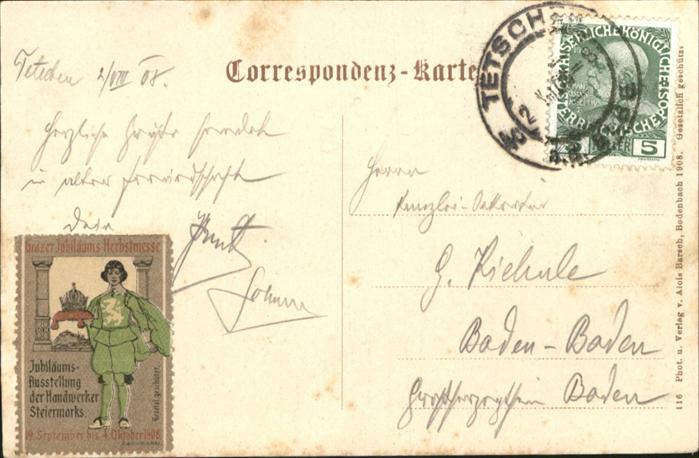 Tetschen 2/VIII 08.
Correspondenz-Karte
Herzliche Grüße sendet
in alter Freundschaft
Dein
TETSCHEN
KAISERLICHE KÖNIGLICHE
ÖSTERREICHISCHE POST
5 HELLER 5
Herrn
Kanzlei-Sekretär
G. Kiehnle
Baden-Baden
Großherzogthum Baden
Grazer Jubiläums-Herbstmesse
Jubiläums-
Ausstellung
der Handwerker
Steiermarks
19. September bis 4. Oktober 1908
116 Phot. u. Verlag v. Alois Barsch, Bodenbach 1908. Gesetzlich geschützt.